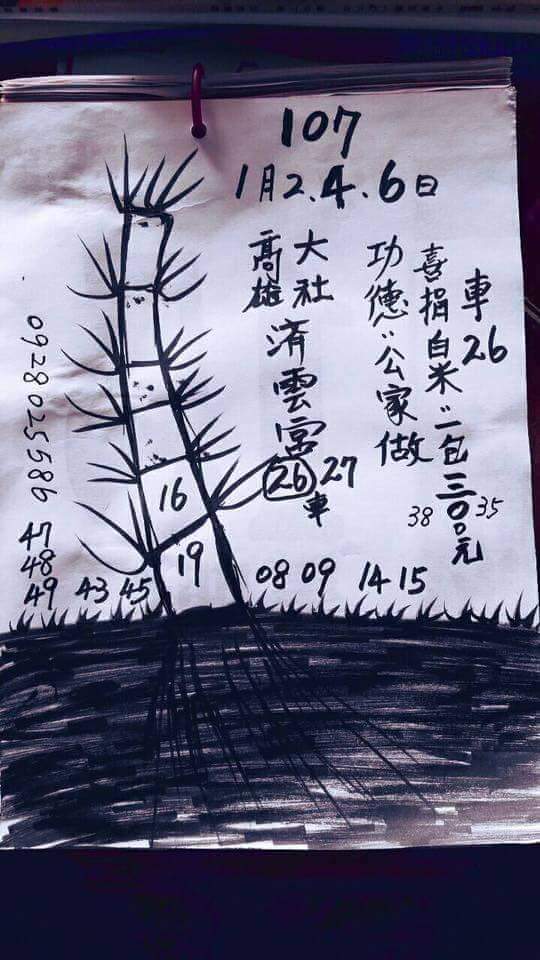 107
1月2.4.6日
車26
喜捐白米"二包三百元
功德"公家做
大社
高雄
済雲宮
26 27
車
38 35
0928025586
16
19
47
48
49 43 45
08 09 14 15